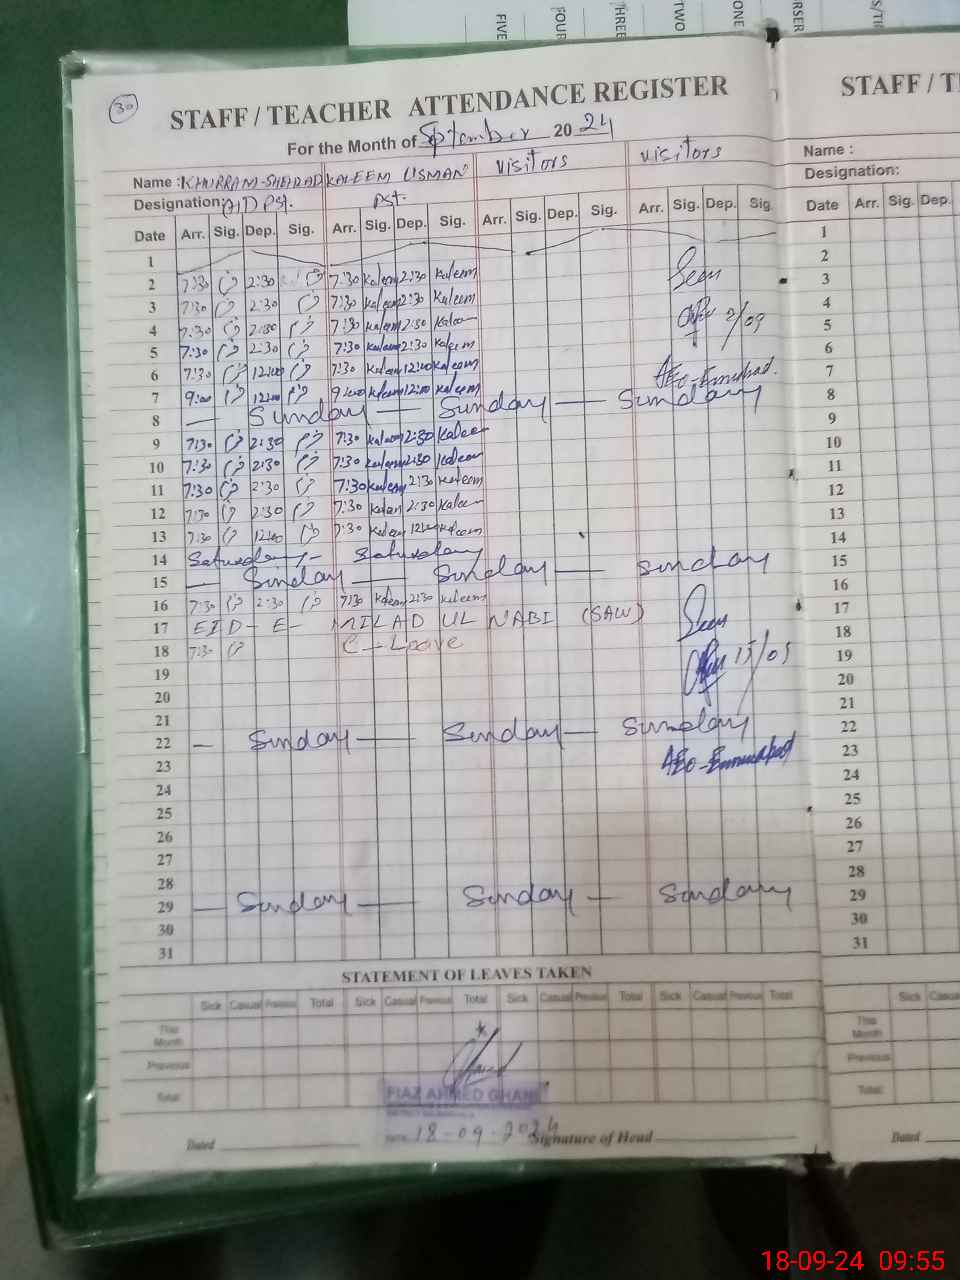 FIVE FOUR THREE TWO ONE
30
STAFF / TEACHER ATTENDANCE REGISTER
For the Month of September 2024
Name : KHURRAM-SHEHZAD KALEEM USMAN Visitors Visitors
Designation: PST. PST.
Date Arr. Sig. Dep. Sig. Arr. Sig. Dep. Sig. Arr. Sig. Dep. Sig. Arr. Sig. Dep. Sig.
1
2 7:30 2:30 7:30 Kaleem 2:30 Kaleem Seen
3 7:30 2:30 7:30 Kaleem 2:30 Kaleem
4 7:30 2:30 7:30 Kaleem 2:30 Kaleem 2/09
5 7:30 2:30 7:30 Kaleem 2:30 Kaleem
6 7:30 12:00 7:30 Kaleem 12:00 Kaleem
7 9:00 12:00 9:00 Kaleem 12:00 Kaleem AEO-Emnabad.
8 — Sunday — Sunday — Sunday
9 7:30 2:30 7:30 Kaleem 2:30 Kaleem
10 7:30 2:30 7:30 Kaleem 2:30 Kaleem
11 7:30 2:30 7:30 Kaleem 2:30 Kaleem
12 7:30 2:30 7:30 Kaleem 2:30 Kaleem
13 7:30 12:00 7:30 Kaleem 12:00 Kaleem
14 Saturday - Saturday
15 — Sunday — Sunday — Sunday
16 7:30 2:30 7:30 Kaleem 2:30 Kaleem
17 EID - E - MILAD UL NABI (SAW) Seen
18 7:30 C-Leave
19
20
21
22 — Sunday — Sunday — Sunday
23 AEO-Emnabad
24
25
26
27
28
29 — Sunday — Sunday — Sunday
30
31
STATEMENT OF LEAVES TAKEN
Sick Casual Previous Total Sick Casual Previous Total Sick Casual Previous Total Sick Casual Previous Total
This Month
Previous
Total
FIAZ AHMED GHANI
18-09-2024
Dated Signature of Head
STAFF / TE
Name :
Designation:
Date Arr. Sig. Dep.
1
2
3
4
5
6
7
8
9
10
11
12
13
14
15
16
17
18
19
20
21
22
23
24
25
26
27
28
29
30
31
Sick Casual
This Month
Previous
Total
Dated
18-09-24 09:55